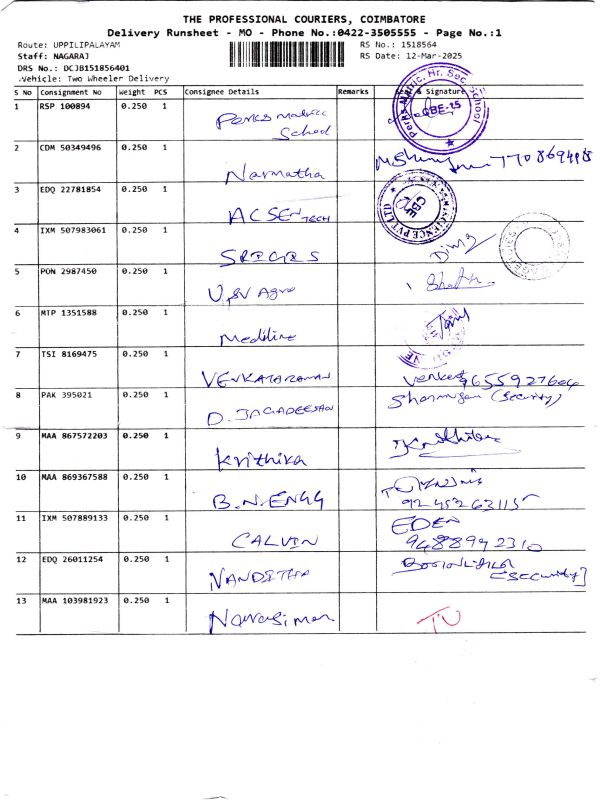 THE PROFESSIONAL COURIERS, COIMBATORE
Delivery Runsheet - MO - Phone No.:0422-3505555 - Page No.:1
Route: UPPILIPALAYAM RS No.: 1518564
Staff: NAGARAJ RS Date: 12-Mar-2025
DRS No.: DCJB151856401
Vehicle: Two Wheeler Delivery
S No Consignment No Weight PCS Consignee Details Remarks & Signature
1 RSP 100894 0.250 1 Perks Matric School
Perks Matric. Hr. Sec. School CBE-15
2 CDM 50349496 0.250 1 Narmatha
3 EDQ 22781854 0.250 1 ACSEN TECH
CBE PVT LTD
4 IXM 507983061 0.250 1
5 PON 2987450 0.250 1 Agro
6 MTP 1351588 0.250 1 Mediline
7 TSI 8169475 0.250 1 VENKATARAMAN
8 PAK 395021 0.250 1 D. JAGADEESAN Shanmugam (Security)
9 MAA 867572203 0.250 1 Krithika
10 MAA 869367588 0.250 1 B.N. ENGG 9245263115
11 IXM 507889133 0.250 1 CALVIN EDEN 9488942310
12 EDQ 26011254 0.250 1 NANDITHA [Security]
13 MAA 103981923 0.250 1